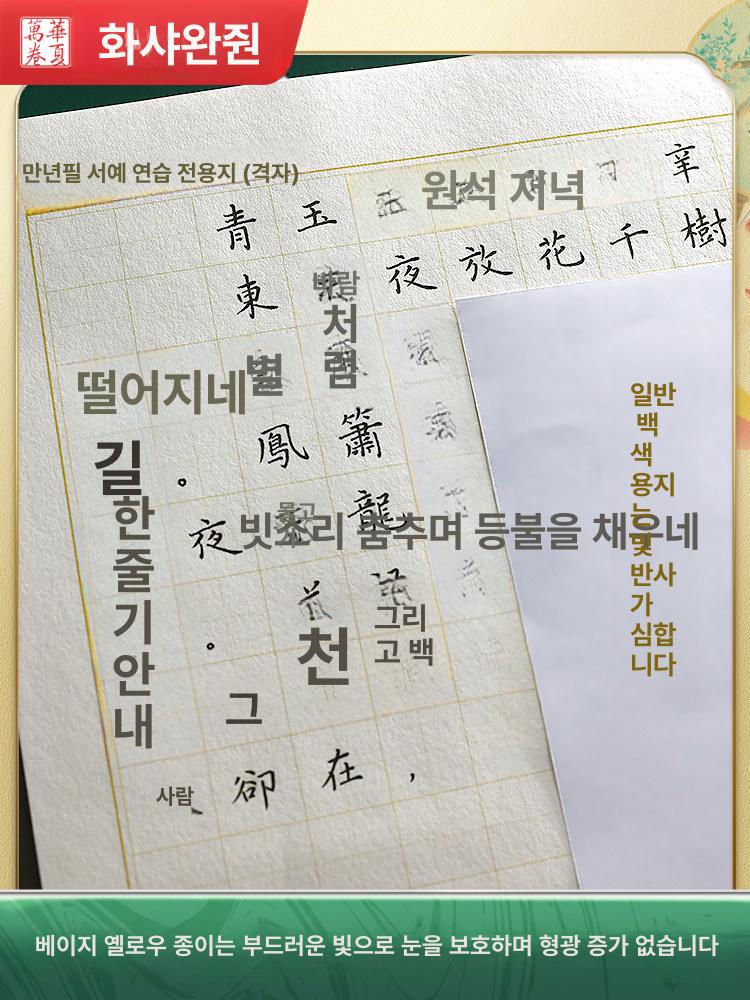 華夏
萬卷
화샤완쥔
만년필 서예 연습 전용지 (격자)
원석 저녁
辛
青 玉
東 夜 放 花 千 樹
바람
처
럼
별
떨어지네
일반
백
색
용지
는 빛
반사
가
심합
니다
鳳 簫
길
。
한
줄
기
안
내
夜
龍
빗소리 춤추며 등불을 채우네
그리
고 백
천
。
그
사람
卻 在 ,
베이지 옐로우 종이는 부드러운 빛으로 눈을 보호하며 형광 증가 없습니다